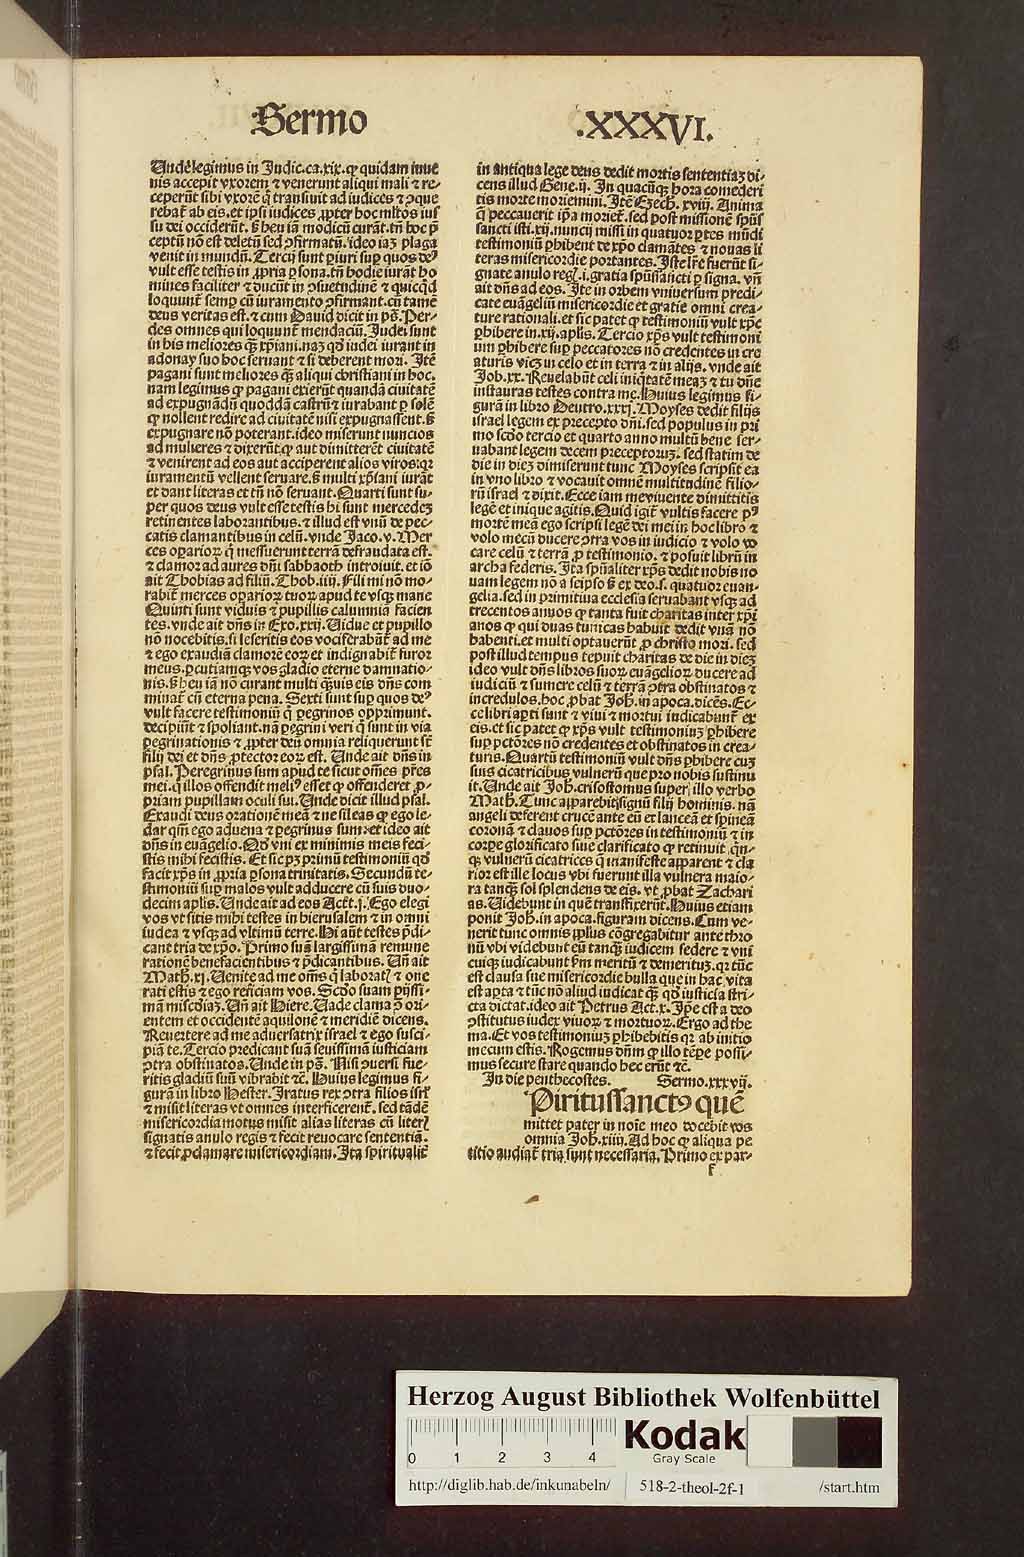 Sermo
.XXXVI.
Unde legimus in Judic.ca.xix. ꝙ quidam inue
nis accepit vxorem ⁊ venerunt aliqui mali ⁊ re-
ceperūt sibi vxorē q̄ transiuit ad iudices ⁊ ↄque
rebat᷑ ab eis. et ipsi iudices ꝓpter hoc mltos ius
su dei occiderūt. s̄ heu iam modicū curāt. tn̄ hoc p̄
ceptū nō est deletū sed ↄfirmatū. ideo iaꝫ plaga
venit in mundū. Tercij sunt ꝑiuri suꝑ quos deꝰ
vult esse testis in ꝓpria ꝑsona. tn̄ hodie iurāt ho
mines faciliter ⁊ ducūt in ↄsuetudinē ⁊ quicqd
loquunt᷑ semꝑ cū iuramento ↄfirmant. cū tamē
deus veritas est. ⁊ cum Dauid dicit in ps̄. Per-
des omnes qui loquunt᷑ mendaciū. Judei sunt
in his meliores q̄ꝫ xp̄iani. naꝫ qd iudei iurant in
adonay suo hoc seruant ⁊ si deberent mori. Itē
pagani sunt meliores q̄ꝫ aliqui christiani in hoc.
nam legimus ꝙ pagani exierūt quandā ciuitatē
ad expugnādū quoddā castrū ⁊ iurabant ꝑ solē
ꝙ nollent redire ad ciuitatē nisi expugnassent. s̄
expugnare nō poterant. ideo miserunt nuncios
ad mulieres ⁊ dixerūt. ꝙ aut dimitterēt ciuitatē
⁊ venirent ad eos aut acciperent alios viros: qꝛ
iuramentū vellent seruare. s̄ multi xp̄iani iurāt
et dant literas et tn̄ nō seruant. Quarti sunt su-
per quos deus vult esse testis hi sunt mercedeꝫ
retinentes laborantibus. ⁊ illud est vnū de pec-
catis clamantibus in celū. vnde Jaco. v. Mer
ces oꝑarioꝝ q̄ messuerunt terrā defraudata est.
⁊ clamor ad aures dn̄i sabbaoth introiuit. et iō
ait Thobias ad filiū. Thob. iiij. Fili mi nō mo-
rabit᷑ merces oꝑarioꝝ tuoꝝ apud te vsqꝫ mane
Quinti sunt viduis ⁊ pupillis calumnia facien
tes. vnde ait dn̄s in Exo. xxij. Uidue et pupillo
nō nocebitis. si leseritis eos vociferabūt᷑ ad me
⁊ ego exaudiā clamorē eoꝝ et indignabit᷑ furor
meus. ꝑcutiamqꝫ vos gladio eterne damnatio-
nis. s̄ heu iā nō curant multi q̄uis eis dn̄s com
minat᷑ cū eterna pena. Sexti sunt suꝑ quos deꝰ
vult facere testimoniū q̄ ꝑegrinos opprimunt.
decipiūt ⁊ spoliant. nā ꝑegrini veri q̄ sunt in via
ꝑegrinationis ⁊ ꝓpter deū omnia reliquerunt st̄
filij dei et dn̄s ꝓtector eoꝝ est. Unde ait dn̄s in
psal. Peregrinus sum apud te sicut om̄es pr̄es
mei. q̄ illos offendit meliꝰ esset ꝙ offenderet ꝓ-
priam pupillam oculi sui. Unde dicit illud psal.
Exaudi deus orationē meā ⁊ ne sileas ꝙ ego le-
dar qm̄ ego aduena ⁊ ꝑegrinus sum: et ideo ait
dn̄s in euāgelio. Qd vni ex minimis meis feci-
stis mihi fecistis. Et sic pꝫ primū testimoniū qd
facit xp̄s in ꝓpria ꝑsona trinitatis. Secundū te-
stimoniū suꝑ malos vult adducere cū suis duo-
decim apl̄is. Unde ait ad eos Act. j. Ego elegi
vos vt sitis mihi testes in hierusalem ⁊ in omni
iudea ⁊ vsqꝫ ad vltimū terre. Hi aūt testes p̄di-
cant tria de xp̄o. Primo suā largissimā remune
rationē benefacientibus ⁊ p̄dicantibus. Un̄ ait
Math. xj. Uenite ad me om̄s q̄ laborat᷑ ⁊ one
rati estis ⁊ ego reficiam vos. Scdo suam pijssi-
mā miscdiaꝫ. Un̄ ait Hiere. Uade clama ↄ ori-
entem et occidentē aquilonē ⁊ meridiē dicens.
Reuertere ad me aduersatrix israel ⁊ ego susci-
piā te. Tercio predicant suā seuissimā iusticiam
ↄtra obstinatos. Unde in ps̄. Nisi ↄuersi fue-
ritis gladiū suū vibrabit ⁊c̄. Huius legimus fi-
gurā in libro Hester. Iratus rex ↄtra filios isrl̄
⁊ misit literas vt omnes interficerent᷑. sed tādē
misericordia motus misit alias literas cū literꝭ
signatis anulo regis ⁊ fecit reuocare sententiā.
⁊ fecit ꝓclamare misericordiam. Ita spiritualit᷑
in antiqua lege deus dedit mortis sententiaꝫ di-
cens illud Gene. ij. In quacūqꝫ hora comederi
tis morte moriemini. Itē Ezech. xviij. Anima
q̄ peccauerit ip̄a moriet᷑. sed post missionē spūs
sancti isti. xij. nuncij missi in quatuor ꝑtes mūdi
testimoniū ꝑhibent de xp̄o clamātes ⁊ nouas li
teras misericordie portantes. Iste lr̄e fuerūt si-
gnate anulo regꝭ. i. gratia spūssancti ꝑ signa. vn̄
ait dn̄s ad eos. Ite in orbem vniuersum predi-
cate euāgeliū misericordie et gratie omni crea-
ture rationali. et sic patet ꝙ testimoniū vult xp̄c
ꝑhibere in. xij. apl̄is. Tercio xp̄s vult testimoni
um ꝑhibere suꝑ peccatores nō credentes in cre
aturis viꝫ in celo et in terra ⁊ in alijs. vnde ait
Job. xx. Reuelabūt celi iniq̄tatē meaꝫ ⁊ tu dn̄e
instauras testes contra me. Huius legimus fi-
gurā in libro Deutro. xxxj. Moyses dedit filijs
israel legem ex precepto dn̄i. sed populus in pri
mo scdo tercio et quarto anno multū bene ser-
uabant legem decem preceptoruꝫ. sed statim de
die in dieꝫ dimiserunt tunc Moyses scripsit ea
in vno libro ⁊ vocauit omnē multitudinē filio-
rū israel ⁊ dixit. Ecce iam me viuente dimittitis
legē et inique agitis. Quid igit᷑ vultis facere pꝰ
mortē meā ego scripsi legē dei mei in hoc libro ⁊
volo mecū ducere ↄtra vos in iudicio ⁊ volo vo
care celū ⁊ terrā ꝓ testimonio. ⁊ posuit librū in
archa federis. Ita spūaliter xp̄s dedit nobis no
uam legem nō a seipso s̄ ex deo. s. quatuor euan-
gelia. sed in primitiua ecclesia seruabant vsqꝫ ad
trecentos annos ꝙ tanta fuit charitas inter xp̄i
anos ꝙ qui duas tunicas habuit dedit vnā nō
habenti. et multi optauerūt ꝓ christo mori. sed
post illud tempus tepuit charitas de die in dieꝫ
ideo vult dn̄s libros suoꝝ euāgelioꝝ ducere ad
iudiciū ⁊ sumere celū ⁊ terrā ↄtra obstinatos ⁊
incredulos. hoc ꝓbat Joh. in apoca. dicēs. Ec-
ce libri aꝑti sunt ⁊ viui ⁊ mortui iudicabunt᷑ ex
eis. et sic patet ꝙ xp̄s vult testimoniuꝫ ꝑhibere
suꝑ pctōres nō credentes et obstinatos in crea-
turis. Quartū testimoniū vult dn̄s ꝑhibere cuꝫ
suis cicatricibus vulnerū que pro nobis sustinu
it. Unde ait Joh. crisostomus super illo verbo
Math. Tunc apparebit signū filij hominis. nā
angeli deferent crucē ante eū et lanceā et spineā
coronā ⁊ clauos suꝑ pctōres in testimoniū ⁊ in
corꝑe glorificato siue clarificato ꝙ retinuit q̄n-
qꝫ vulnerū cicatrices q̄ manifeste apparent ⁊ cla
rior est ille locus vbi fuerunt illa vulnera maio-
ra tanqꝫ sol splendens de eis. vt ꝓbat Zachari
as. Uidebunt in quē transfixerūt. Huius etiam
ponit Joh. in apoca. figuram dicens. Cum ve-
nerit tunc omnis ppl̄us cōgregabitur ante thro
nū vbi videbunt eū tanqꝫ iudicem sedere ⁊ vni
cuiqꝫ iudicabunt ẜm meritū ⁊ demerituꝫ. qꝛ tūc
est clausa sue misericordie bulla que in hac vita
est aꝑta ⁊ tūc nō aliud iudicat q̄ꝫ qd iusticia stri-
cta dictat. ideo ait Petrus Act. x. Ip̄e est a deo
ↄstitutus iudex viuoꝝ ⁊ mortuoꝝ. Ergo ad the
ma. Et vos testimoniuꝫ ꝑhibebitis qꝛ ab initio
mecum estis. Rogemus dn̄m ꝙ illo tēpe possi-
mus secure stare quando hec erūt ⁊c̄.
In die penthecostes. Sermo. xxxvij.
Spiritussanctꝰ quē
mittet pater in noīe meo docebit vos
omnia Joh. xiiij. Ad hoc ꝙ aliqua pe
titio audiat᷑ tria sunt necessaria. Primo ex par-
f
Herzog August Bibliothek Wolfenbüttel
0 1 2 3 4
Kodak
Gray Scale
http://diglib.hab.de/inkunabeln/ 518-2-theol-2f-1 /start.htm